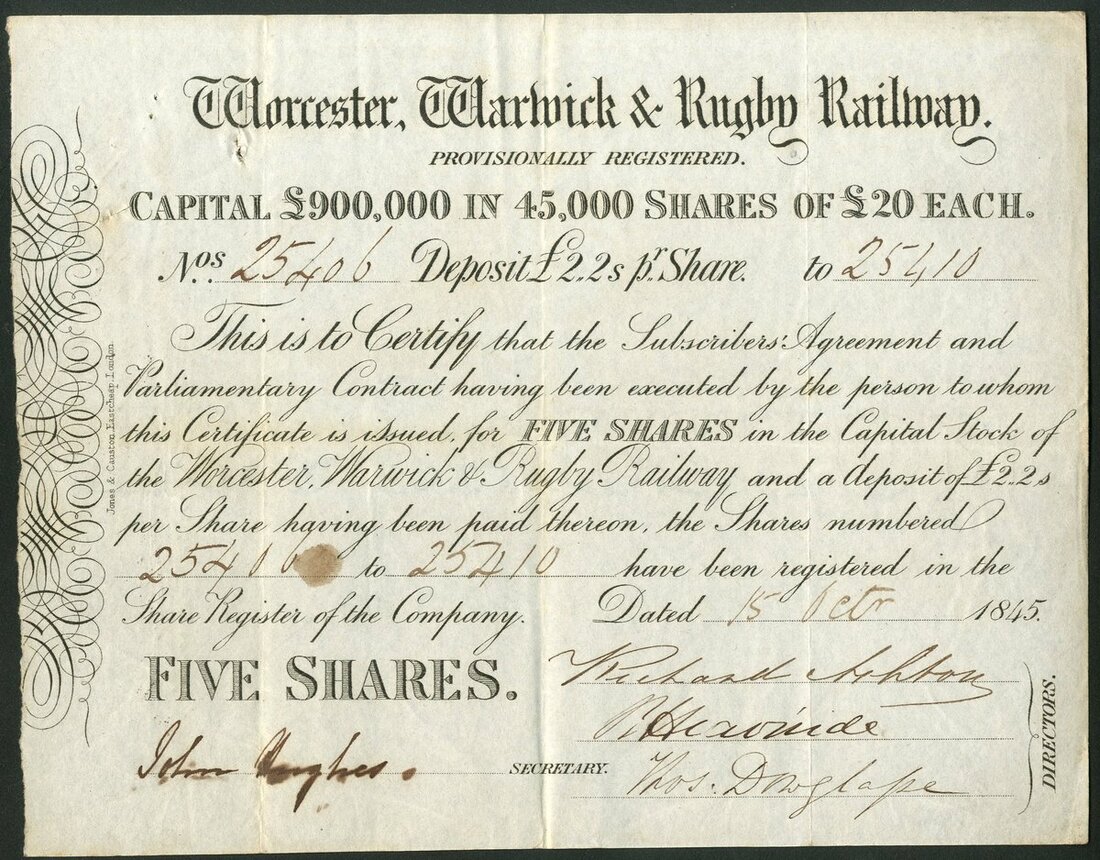 Worcester, Warwick & Rugby Railway.
PROVISIONALLY REGISTERED.
CAPITAL £900,000 IN 45,000 SHARES OF £20 EACH.
Nos. 25406 Deposit £2..2s pr. Share. to 25410
This is to Certify that the Subscribers' Agreement and
Parliamentary Contract having been executed by the person to whom
this Certificate is issued, for FIVE SHARES in the Capital Stock of
the Worcester, Warwick & Rugby Railway and a deposit of £2..2s
per Share having been paid thereon, the Shares numbered
25406 to 25410 have been registered in the
Share Register of the Company. Dated 15 Octr 1845.
FIVE SHARES.
Richard Ashton
John Hughes. SECRETARY.
Thos. Dowglass
DIRECTORS.
Jones & Causton, Eastcheap, London.